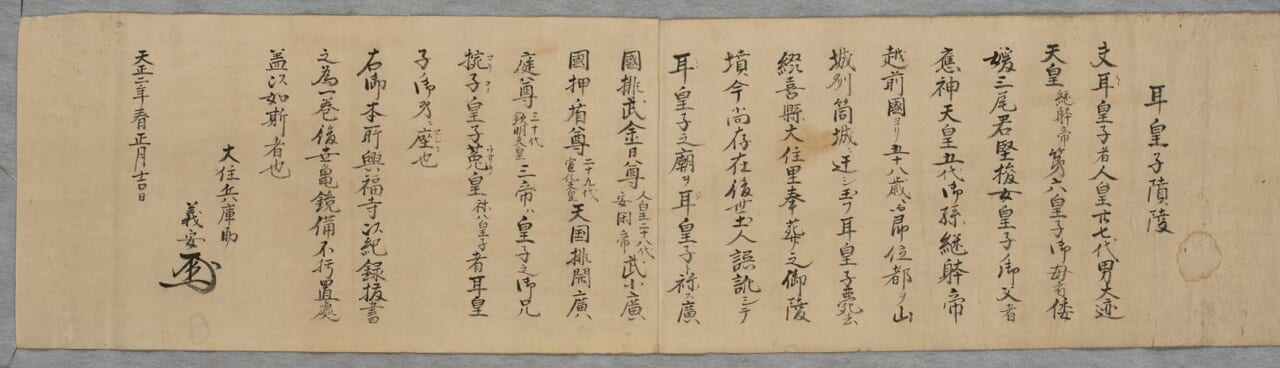 耳皇子墳陵
夫耳皇子者人皇廿七代男大迹
天皇継躰帝第六皇子御母者倭
媛三尾君堅捘女皇子御父者
應神天皇五代御孫継躰帝
越前國ヨリ五十八歳ニ而即位都ヲ山
城列筒城ニ迁シ玉フ耳皇子薨去
綴喜縣大住里奉葬之御陵
墳今尚存在後世土人謡訛シテ
耳皇子之廟ヲ耳皇子ト称ス廣
國排武金日尊人白王二十八代安閑帝武小廣
國押盾尊二十九代宣化天皇天国排開廣
庭尊三十代欽明天皇三帝ハ皇子之御兄
椀子皇子菟皇称八皇子者耳皇
子御弟ニ座也
右御本所興福寺以紀録抜書
之為一巻後世亀鏡備不朽置處
盖以如斯者也
大住兵庫助
義安
天正二年春正月吉日